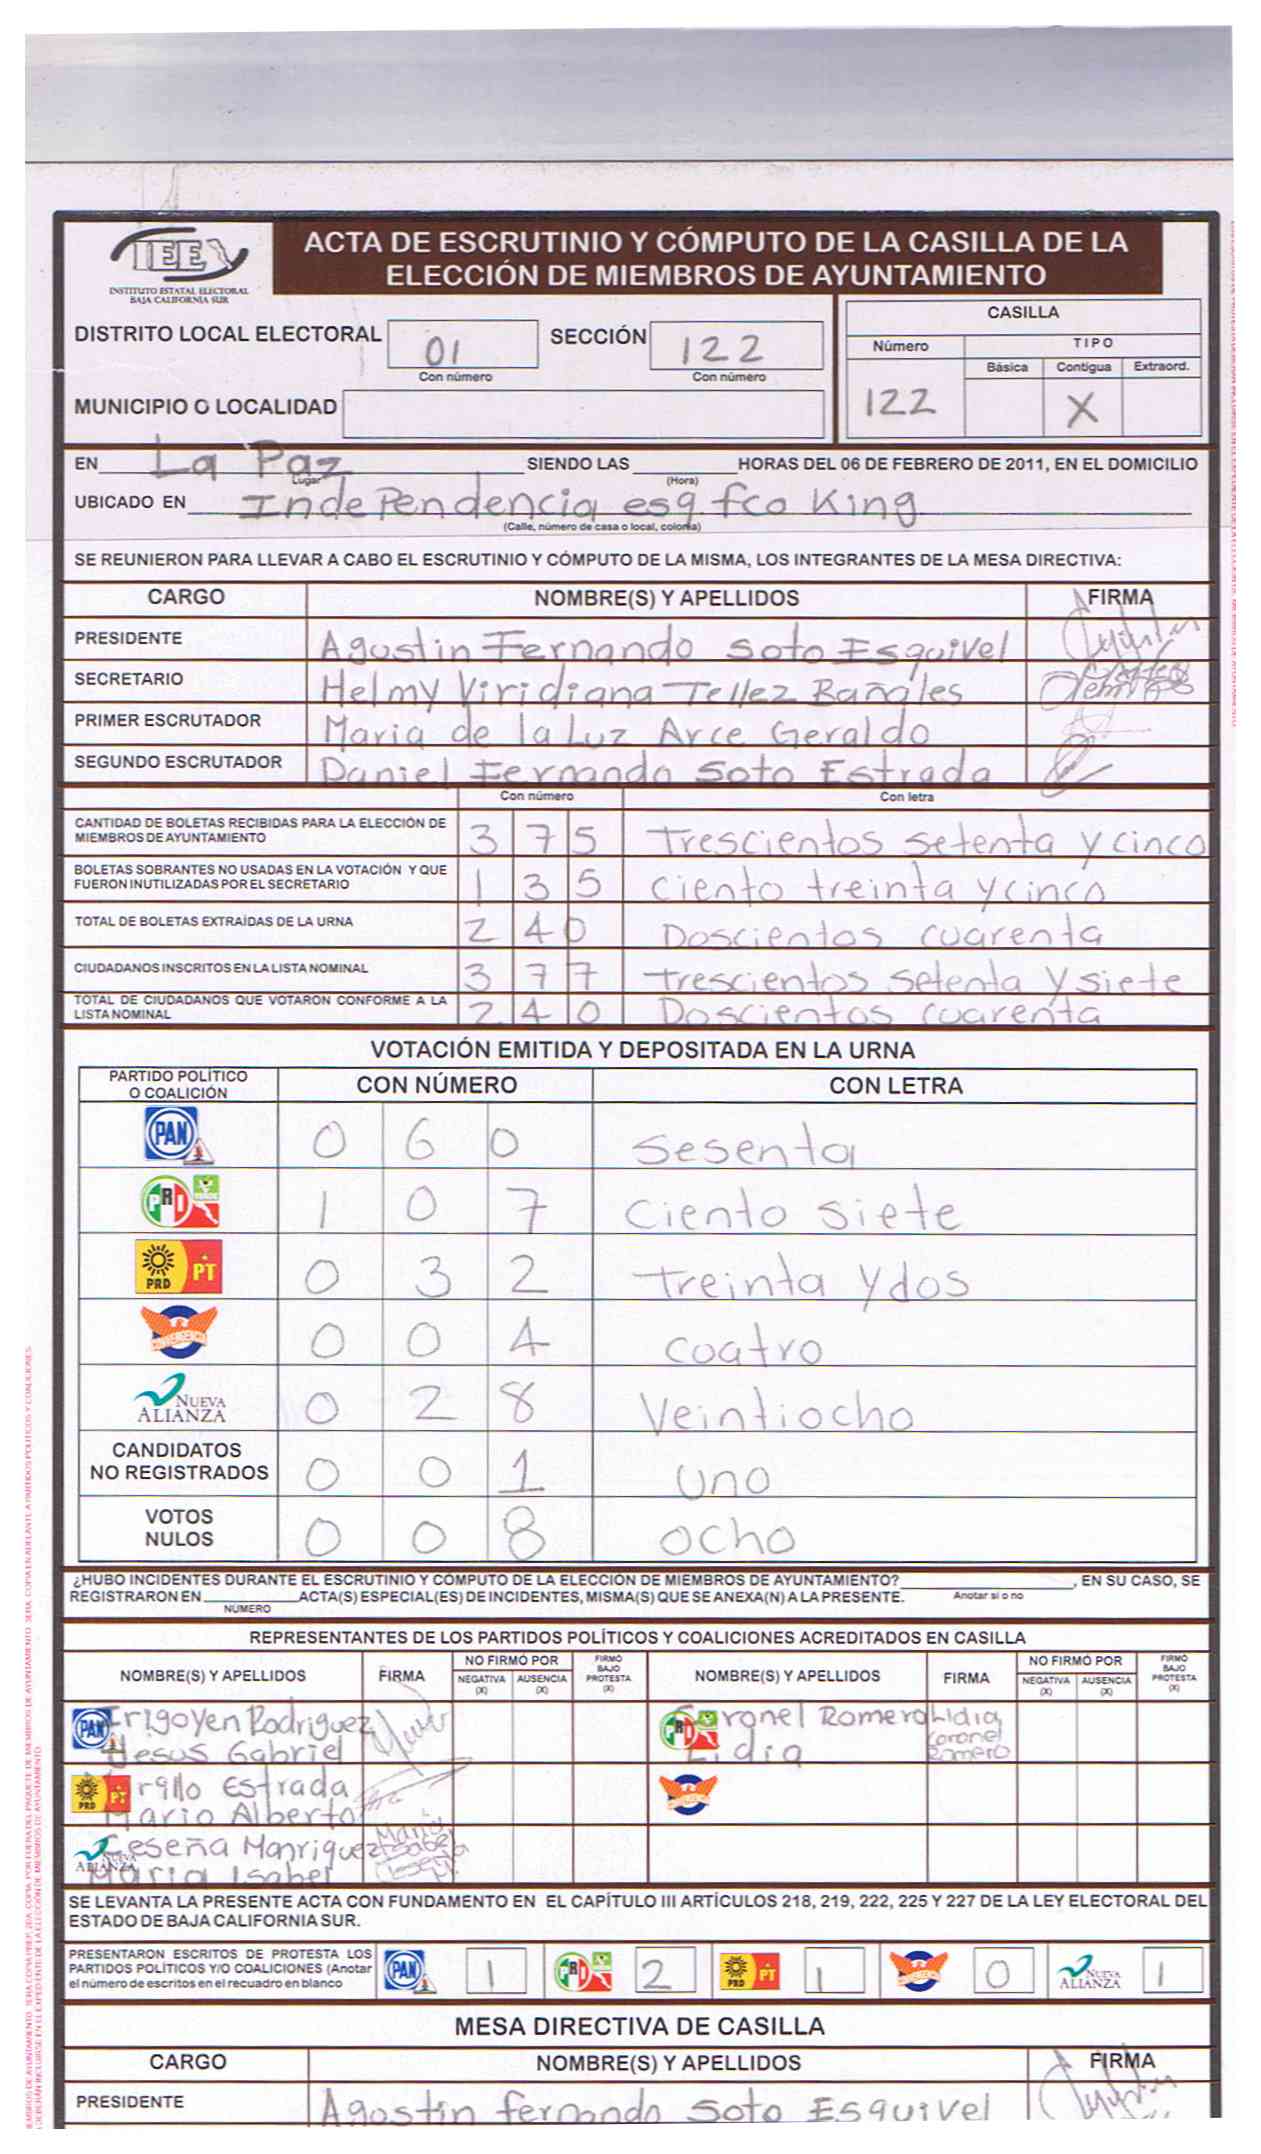 IEE
INSTITUTO ESTATAL ELECTORAL
BAJA CALIFORNIA SUR
ACTA DE ESCRUTINIO Y CÓMPUTO DE LA CASILLA DE LA
ELECCIÓN DE MIEMBROS DE AYUNTAMIENTO
DISTRITO LOCAL ELECTORAL 01 SECCIÓN 122
Con número Con número
MUNICIPIO O LOCALIDAD
CASILLA
Número TIPO
Básica Contigua Extraord.
122 X
EN La Paz SIENDO LAS HORAS DEL 06 DE FEBRERO DE 2011, EN EL DOMICILIO
Lugar (Hora)
UBICADO EN Independencia esq. fco King
(Calle, número de casa o local, colonia)
SE REUNIERON PARA LLEVAR A CABO EL ESCRUTINIO Y CÓMPUTO DE LA MISMA, LOS INTEGRANTES DE LA MESA DIRECTIVA:
CARGO NOMBRE(S) Y APELLIDOS FIRMA
PRESIDENTE Agustin Fernando Soto Esquivel
SECRETARIO Helmy Viridiana Tellez Bañales
PRIMER ESCRUTADOR Maria de la Luz Arce Geraldo
SEGUNDO ESCRUTADOR Daniel Fernando Soto Estrada
Con número Con letra
CANTIDAD DE BOLETAS RECIBIDAS PARA LA ELECCIÓN DE
MIEMBROS DE AYUNTAMIENTO 3 7 5 Trescientos setenta y cinco
BOLETAS SOBRANTES NO USADAS EN LA VOTACIÓN Y QUE
FUERON INUTILIZADAS POR EL SECRETARIO 1 3 5 ciento treinta y cinco
TOTAL DE BOLETAS EXTRAÍDAS DE LA URNA 2 4 0 Doscientos cuarenta
CIUDADANOS INSCRITOS EN LA LISTA NOMINAL 3 7 7 trescientos setenta y siete
TOTAL DE CIUDADANOS QUE VOTARON CONFORME A LA
LISTA NOMINAL 2 4 0 Doscientos cuarenta
VOTACIÓN EMITIDA Y DEPOSITADA EN LA URNA
PARTIDO POLÍTICO
O COALICIÓN CON NÚMERO CON LETRA
PAN 0 6 0 sesenta
PRI VERDE 1 0 7 ciento siete
PRD PT 0 3 2 treinta y dos
CONVERGENCIA 0 0 4 cuatro
NUEVA ALIANZA 0 2 8 Veintiocho
CANDIDATOS
NO REGISTRADOS 0 0 1 uno
VOTOS
NULOS 0 0 8 ocho
¿HUBO INCIDENTES DURANTE EL ESCRUTINIO Y COMPUTO DE LA ELECCIÓN DE MIEMBROS DE AYUNTAMIENTO? , EN SU CASO, SE
REGISTRARON EN ACTA(S) ESPECIAL(ES) DE INCIDENTES, MISMA(S) QUE SE ANEXA(N) A LA PRESENTE. Anotar si o no
NÚMERO
REPRESENTANTES DE LOS PARTIDOS POLÍTICOS Y COALICIONES ACREDITADOS EN CASILLA
NOMBRE(S) Y APELLIDOS FIRMA NO FIRMÓ POR NEGATIVA (X) AUSENCIA (X) FIRMÓ BAJO PROTESTA (X) NOMBRE(S) Y APELLIDOS FIRMA NO FIRMÓ POR NEGATIVA (X) AUSENCIA (X) FIRMÓ BAJO PROTESTA (X)
PAN Irigoyen Rodriguez PRI Coronel Romero Lidia
Jesus Gabriel Lidia Coronel Romero
PRD PT Murillo Estrada
Mario Alberto
NUEVA ALIANZA Ceseña Manriquez Maria
Maria Isabel Isabel
SE LEVANTA LA PRESENTE ACTA CON FUNDAMENTO EN EL CAPÍTULO III ARTÍCULOS 218, 219, 222, 225 Y 227 DE LA LEY ELECTORAL DEL
ESTADO DE BAJA CALIFORNIA SUR.
PRESENTARON ESCRITOS DE PROTESTA LOS
PARTIDOS POLÍTICOS Y/O COALICIONES (Anotar
el número de escritos en el recuadro en blanco
PAN 1 PRI 2 PRD PT 1 CONVERGENCIA 0 NUEVA ALIANZA 1
MESA DIRECTIVA DE CASILLA
CARGO NOMBRE(S) Y APELLIDOS FIRMA
PRESIDENTE Agustin fernando Soto Esquivel